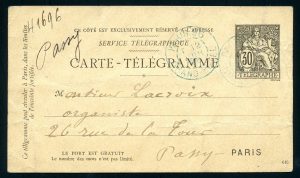 CE CÔTÉ EST EXCLUSIVEMENT RÉSERVÉ A L'ADRESSE
SERVICE TÉLÉGRAPHIQUE
CARTE-TÉLÉGRAMME
41696
Passy
Ce télégramme peut circuler à Paris, dans les limites
de l'enceinte fortifiée.
30
TELEGRAPHE
Monsieur Lacroix
organiste
26 rue de la Tour
Passy
PARIS
LE PORT EST GRATUIT
Le nombre des mots n'est pas limité.